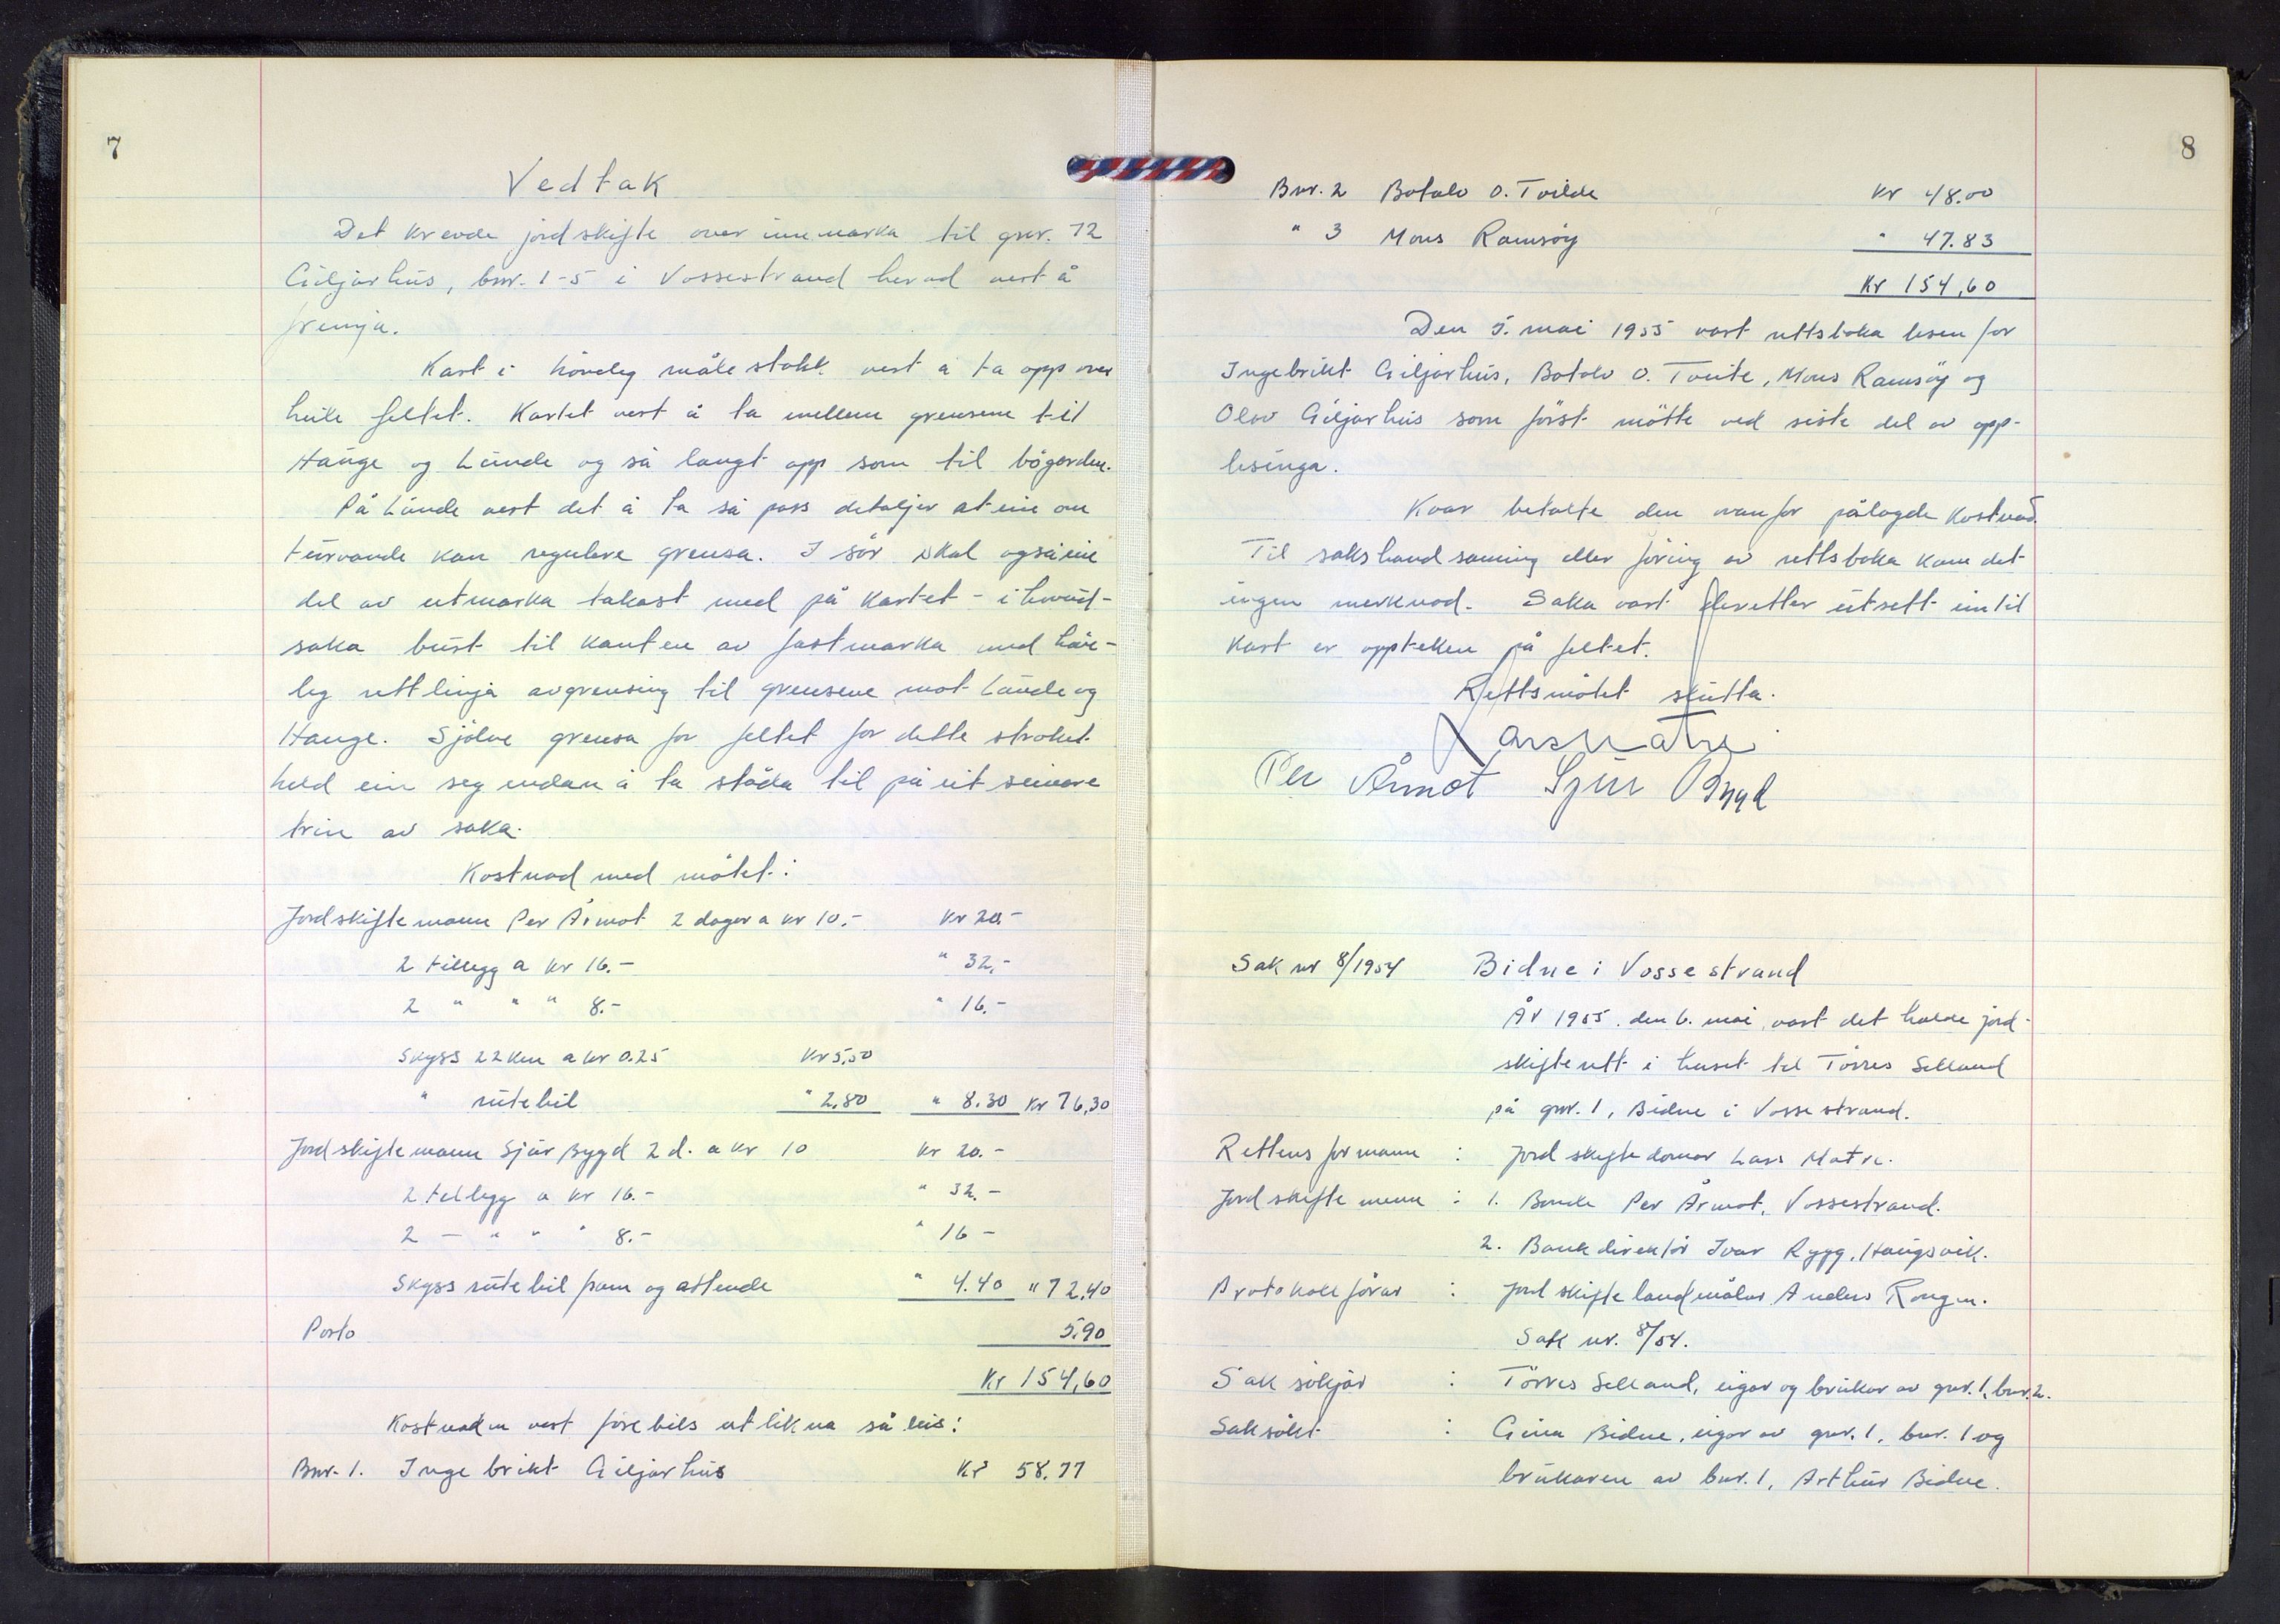 7
Vedtak
Det krevde jordskifte over innmarka til gnr. 72
Giljarhus, bnr. 1-5 i Vossestrand herad vert å
fremja.
Kart i höveleg målestokk vert å ta opp over
heile feltet. Kartet vert å ta mellem grensene til
Hauge og Lunde og så langt opp som til bögarden.
På Lunde vert det å ta så pass detaljer at ein om
turvande kan regulere grensa. I sör skal også ein
del av utmarka takast med på kartet - i hovud-
saka burt til kanten av fastmarka med höve-
leg rettlinja avgrensing til grensene mot Lunde og
Hauge. Sjölve grensa for feltet for dette stroket
held ein seg undan å ta stöda til på eit seinare
trin av saka.
Kostnad med mötet:
Jordskiftemann Per Årmot 2 dagar a kr 10.- kr 20.-
2 tillegg a kr 16.- " 32,-
2 " " " 8.- " 16.-
Skyss 22 km a kr 0.25 kr 5,50
" rutebil " 2,80 " 8.30 kr 76,30
Jordskiftemann Sjur Bygd 2 d. a kr 10 kr 20.-
2 tillegg a kr 16.- " 32.-
2 - " " " 8.- " 16 -
Skyss rutebil fram og attende " 4.40 " 72,40
Porto 5.90
Kr 154,60
Kostnaden vert förebils utlikna såleis:
Bnr. 1. Ingebrikt Giljarhus Kr 58.77
8
Bnr. 2 Botolv O. Tvilde Kr 48.00
" 3 Mons Ramsöy " 47.83
Kr 154,60
Den 5. mai 1955 vart rettsboka lesen for
Ingebrikt Giljarhus, Botolv O. Tveite, Mons Ramsöy og
Olav Giljarhus som först mötte ved siste del av opp-
lesinga.
Kvar betalte den ovanfor pålagde kostnad.
Til sakshandsaming eller föring av rettsboka kom det
ingen merknad. Saka vart deretter utsett inntil
kart er oppteken på feltet.
Rettsmötet slutta.
Lars Matre
Per Årmot Sjur Bygd
Sak nr 8/1954 Bidne i Vossestrand
År 1955. den 6. mai, vart det halde jord-
skifterett i huset til Törres Selland
på gnr. 1, Bidne i Vossestrand.
Rettens formann : Jordskiftedomar Lars Matre.
Jordskiftemenn : 1. Bonde Per Årmot, Vossestrand.
2. Bankdirektör Ivar Rygg, Haugsvik.
Protokollförar : Jordskiftelandmålar Anders Rongen.
Sak nr. 8/54.
Saksökjar : Törres Selland, eigar og brukar av gnr. 1, bnr. 2.
Saksökt : Gina Bidne, eigar av gnr. 1, bnr. 1 og
brukaren av bnr. 1, Arthur Bidne.